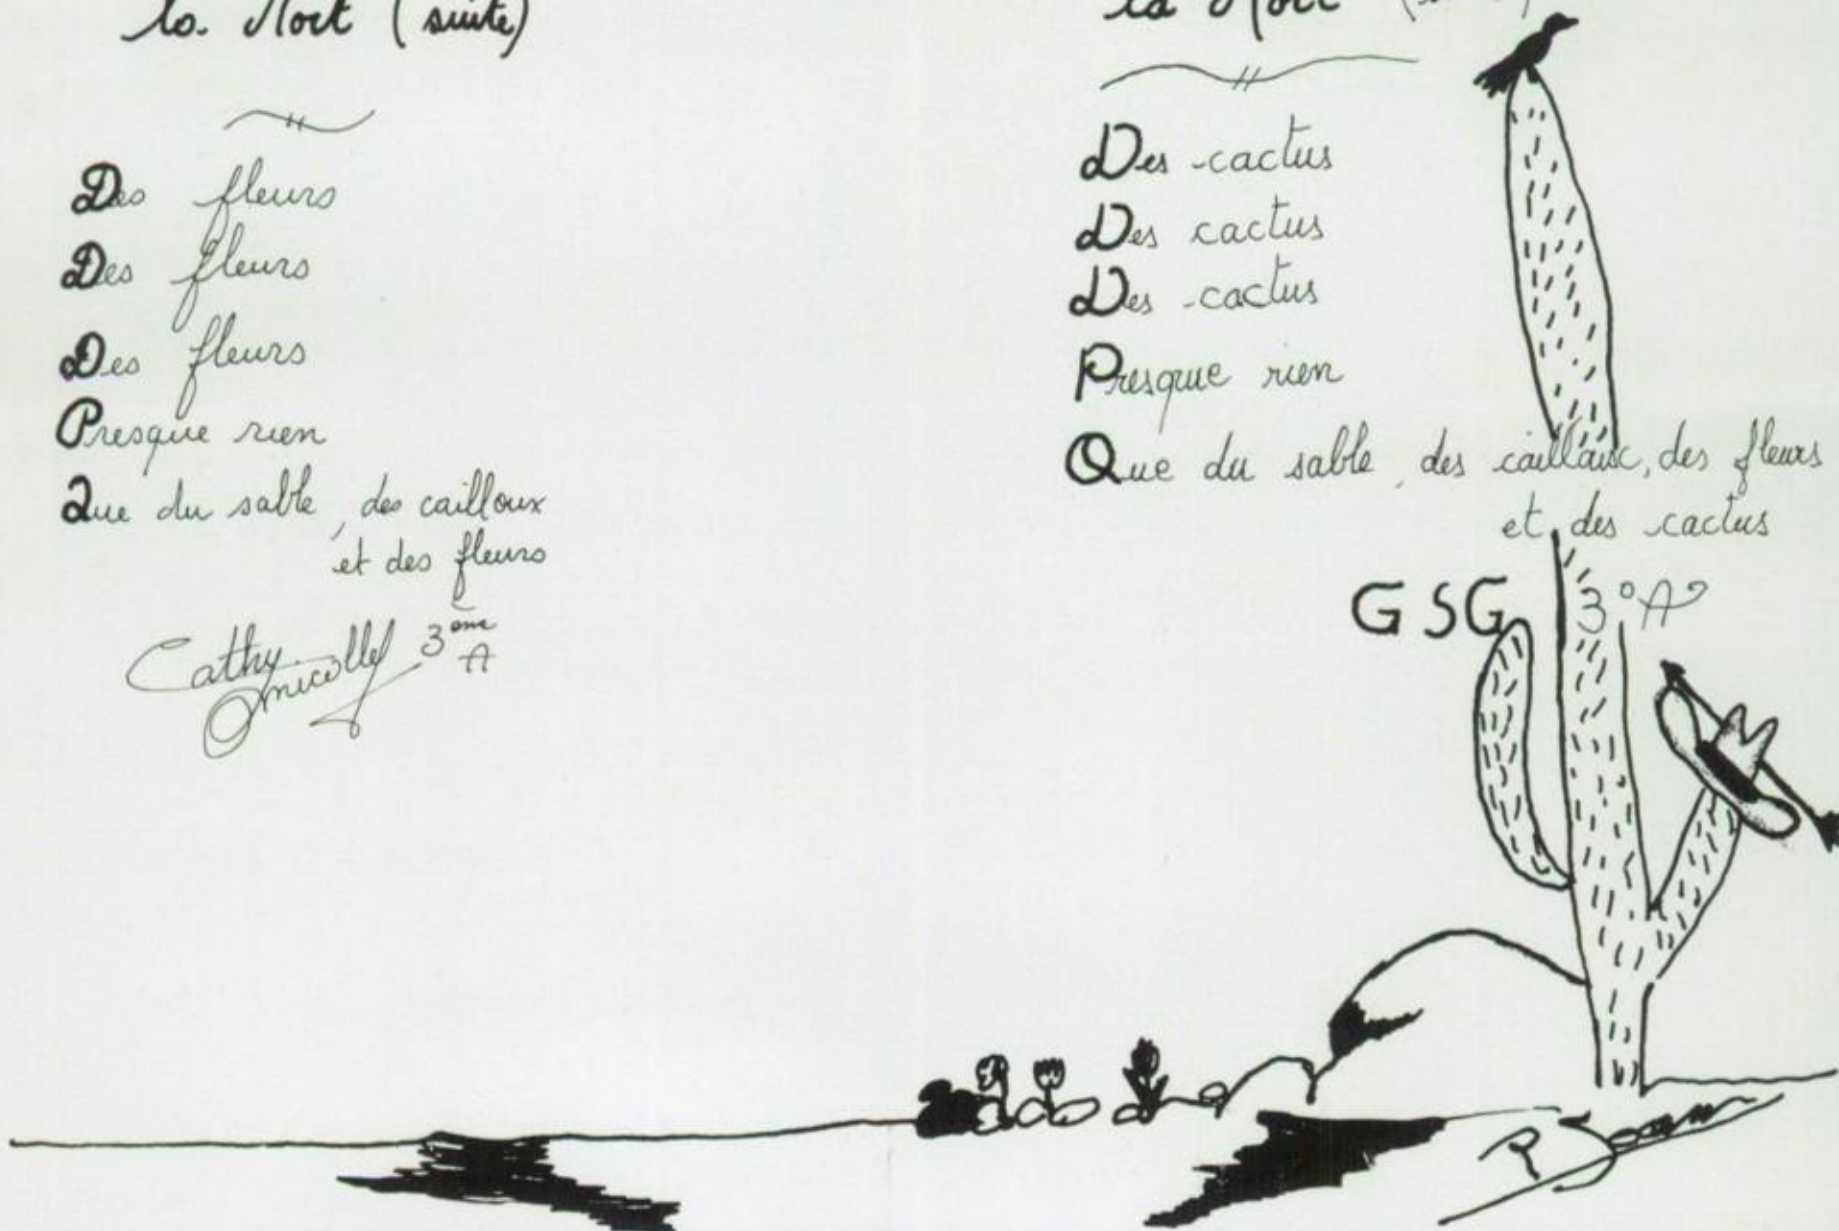 la Mort (suite)
Des fleurs
Des fleurs
Des fleurs
Presque rien
Que du sable, des cailloux
et des fleurs
Cathy
3ème
A
la Mort
Des cactus
Des cactus
Des cactus
Presque rien
Que du sable, des cailloux, des fleurs
et des cactus
GSG 3°A